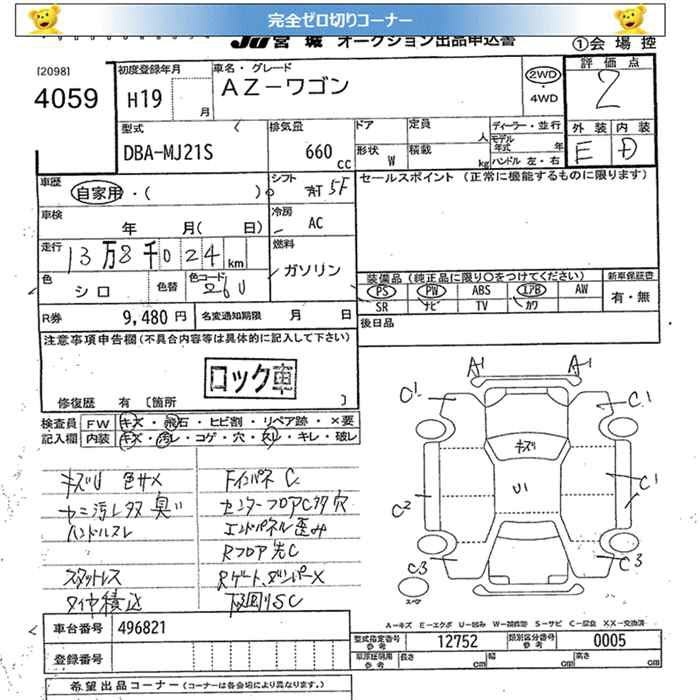 完全ゼロ切りコーナー
JU宮城 オークション出品申込書 ①会場控
[2098]
4059
初度登録年月 H19 月
車名・グレード AZ-ワゴン
2WD・4WD
評価点 2
型式 DBA-MJ21S
排気量 660 cc
ドア 形状 W
定員 人 積載 kg
ディーラー・並行
モデル年式 年
ハンドル 左・右
外装 E 内装 D
車歴 自家用・( )
シフト AT 5F
セールスポイント (正常に機能するものに限ります)
車検 年 月( 日)
冷房 AC
走行 13万8千024km
燃料 ガソリン
色 シロ 色替 色コード 26U
装備品 (純正品に限り○をつけてください) 新車保証書
PS PW ABS エアB AW 有・無
SR ナビ TV カワ
R券 9,480円 名変通知期限 月 日
後日品
注意事項申告欄 (不具合内容等は具体的に記入して下さい)
ロック車
修復歴 有 [箇所 ]
検査員 FW キズ・飛石・ヒビ割・リペア跡・×要
記入欄 内装 キズ・汚レ・コゲ・穴・スレ・キレ・破レ
キズU 色サメ
Fインパネ C
臭い
センターフロアC穴
ハンドルスレ
エンドパネル歪み
Rフロア先C
スタットレス
Rゲートダンパー×
タイヤ積込
下回りSC
A1 A1
C1 C1
キズ
U1
C2 C1
C3 C3
スペアー
A-キズ E-エクボ U-凹み W-補修跡 S-サビ C-腐食 XX-交換済
車台番号 496821
型式指定番号 参考 12752 類別区分番号 参考 0005
登録番号
車庫証明用 参考 長さ cm 幅 cm 高さ cm
希望出品コーナー (コーナーは各会場により異なります。)